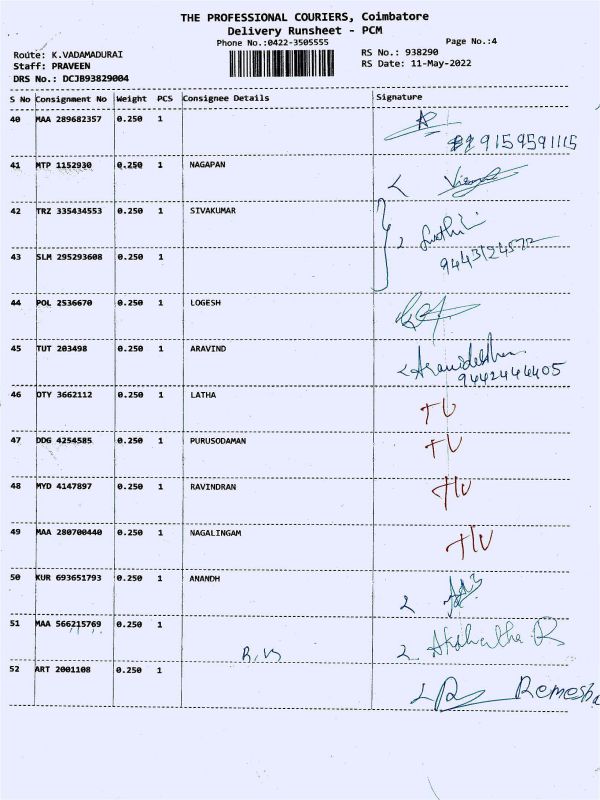 THE PROFESSIONAL COURIERS, Coimbatore
Delivery Runsheet - PCM
Phone No.:0422-3505555 Page No.:4
Route: K.VADAMADURAI RS No.: 938290
Staff: PRAVEEN RS Date: 11-May-2022
DRS No.: DCJB93829004
S No Consignment No Weight PCS Consignee Details Signature
40 MAA 289682357 0.250 1
9159591115
41 MTP 1152930 0.250 1 NAGAPAN
42 TRZ 335434553 0.250 1 SIVAKUMAR
43 SLM 295293608 0.250 1
44 POL 2536670 0.250 1 LOGESH
45 TUT 203498 0.250 1 ARAVIND
9442444405
46 OTY 3662112 0.250 1 LATHA
47 DDG 4254585 0.250 1 PURUSODAMAN
48 MYD 4147897 0.250 1 RAVINDRAN
49 MAA 280700440 0.250 1 NAGALINGAM
50 KUR 693651793 0.250 1 ANANDH
51 MAA 566215769 0.250 1
52 ART 2001108 0.250 1 Remesh